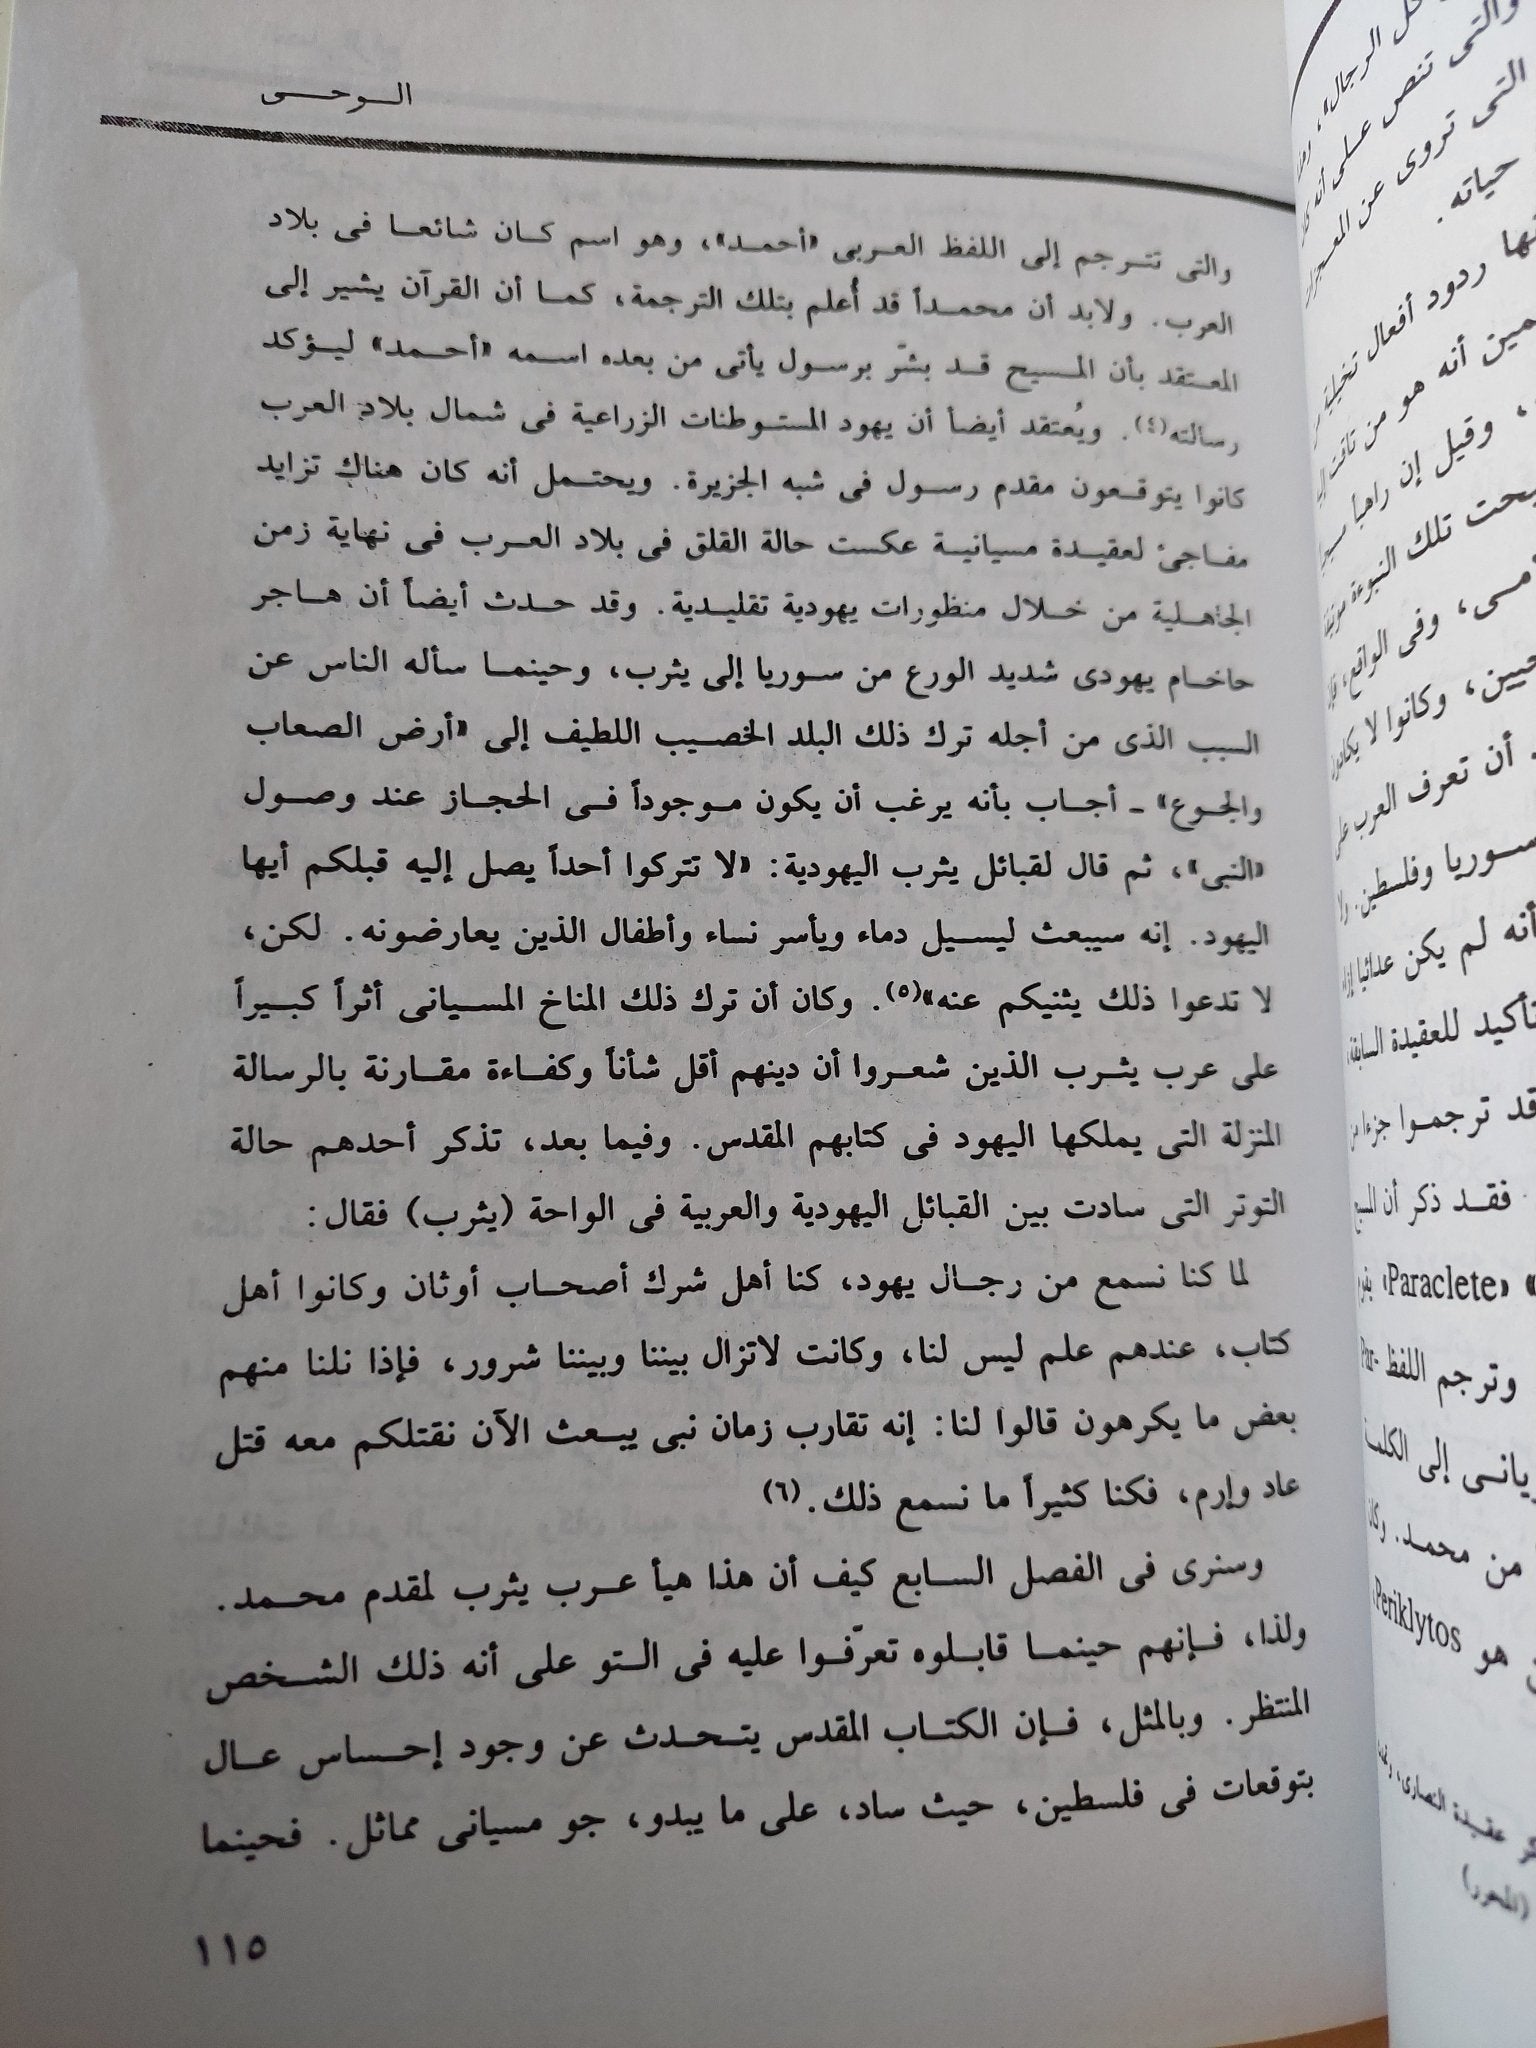 الوحى
والتى تترجم إلى اللفظ العربى «أحمد»، وهو اسم كان شائعا فى بلاد
العرب. ولابد أن محمداً قد أُعلم بتلك الترجمة، كما أن القرآن يشير إلى
المعتقد بأن المسيح قد بشّر برسول يأتى من بعده اسمه «أحمد» ليؤكد
رسالته(٤). ويُعتقد أيضاً أن يهود المستوطنات الزراعية فى شمال بلاد العرب
كانوا يتوقعون مقدم رسول فى شبه الجزيرة. ويحتمل أنه كان هناك تزايد
مفاجئ لعقيدة مسيانية عكست حالة القلق فى بلاد العرب فى نهاية زمن
الجاهلية من خلال منظورات يهودية تقليدية. وقد حدث أيضاً أن هاجر
حاخام يهودى شديد الورع من سوريا إلى يثرب، وحينما سأله الناس عن
السبب الذى من أجله ترك ذلك البلد الخصيب اللطيف إلى «أرض الصعاب
والجوع» - أجاب بأنه يرغب أن يكون موجوداً فى الحجاز عند وصول
«النبى»، ثم قال لقبائل يثرب اليهودية: «لا تتركوا أحداً يصل إليه قبلكم أيها
اليهود. إنه سيبعث ليسيل دماء ويأسر نساء وأطفال الذين يعارضونه. لكن،
لا تدعوا ذلك يثنيكم عنه»(٥). وكان أن ترك ذلك المناخ المسيانى أثراً كبيراً
على عرب يثرب الذين شعروا أن دينهم أقل شأناً وكفاءة مقارنة بالرسالة
المنزلة التى يملكها اليهود فى كتابهم المقدس. وفيما بعد، تذكر أحدهم حالة
التوتر التى سادت بين القبائل اليهودية والعربية فى الواحة (يثرب) فقال:
لما كنا نسمع من رجال يهود، كنا أهل شرك أصحاب أوثان وكانوا أهل
كتاب، عندهم علم ليس لنا، وكانت لاتزال بيننا وبيننا شرور، فإذا نلنا منهم
بعض ما يكرهون قالوا لنا: إنه تقارب زمان نبى يبعث الآن نقتلكم معه قتل
عاد وإرم، فكنا كثيراً ما نسمع ذلك.(٦)
وسنرى فى الفصل السابع كيف أن هذا هيأ عرب يثرب لمقدم محمد.
ولذا، فإنهم حينما قابلوه تعرّفوا عليه فى التو على أنه ذلك الشخص
المنتظر. وبالمثل، فإن الكتاب المقدس يتحدث عن وجود إحساس عال
بتوقعات فى فلسطين، حيث ساد، على ما يبدو، جو مسيانى مماثل. فحينما
١١٥
كل الرجال»،
والتى تنص على أنه
التى تروى عن
حياته.
ردود أفعال
أنه هو من
، وقيل إن راهبا
تلك النبوءة
، وفى الواقع،
، وكانوا لا
أن تعرف العرب
سوريا وفلسطين.
أنه لم يكن عدائيا
تأكيد للعقيدة السابقة
قد ترجموا جزءا من
فقد ذكر أن المسيح
«Paraclete»
وترجم اللفظ Par-
إلى الكلمة
من محمد.
هو Periklytos
عقيدة النصارى،
(المحرر)